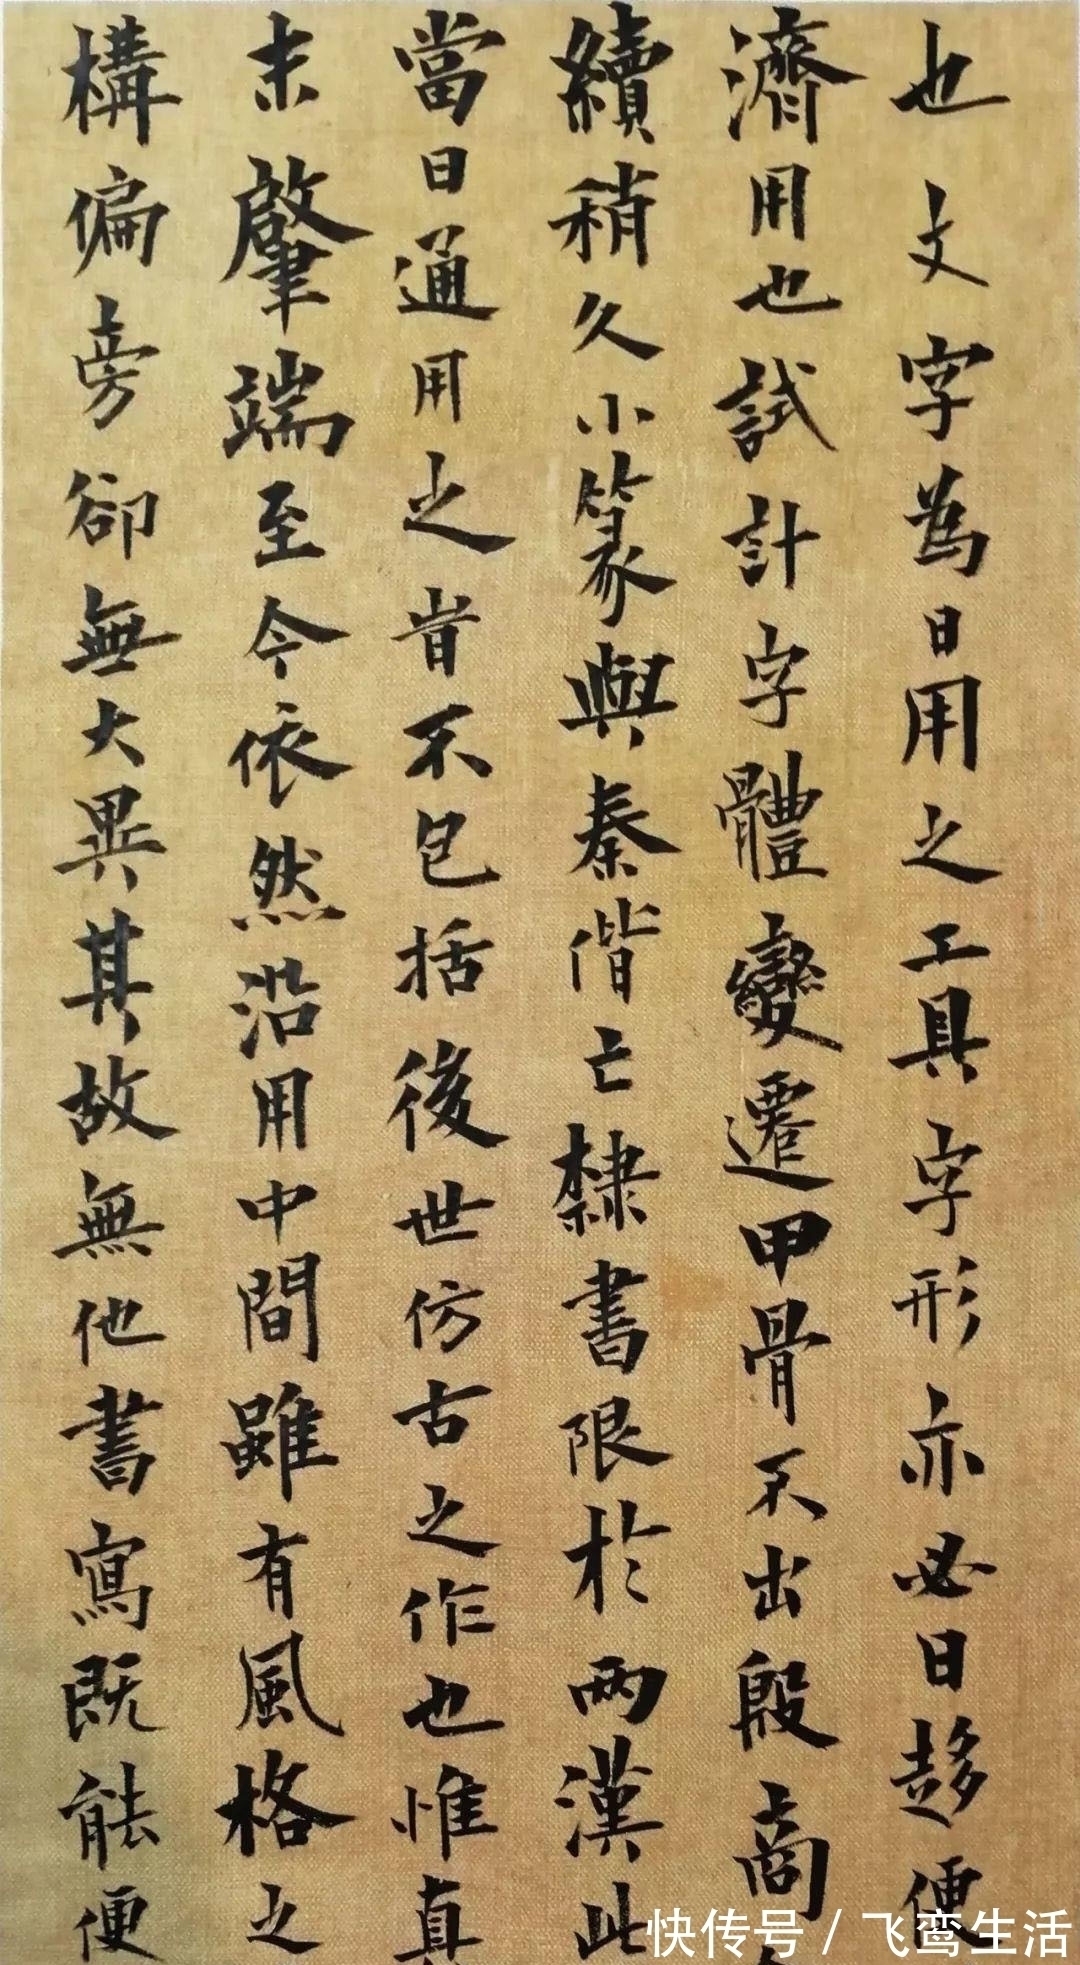 也文字為日用之工具字形亦必日趍便
濟用也試計字體變遷甲骨不出殷商
續稍久小篆與秦偕亡隸書限於兩漢此
當日通用之旹不包括後世仿古之作也惟真
末肇端至今依然沿用中間雖有風格之
構偏旁卻無大異其故無他書寫既能便
快传号 / 飞鸾生活